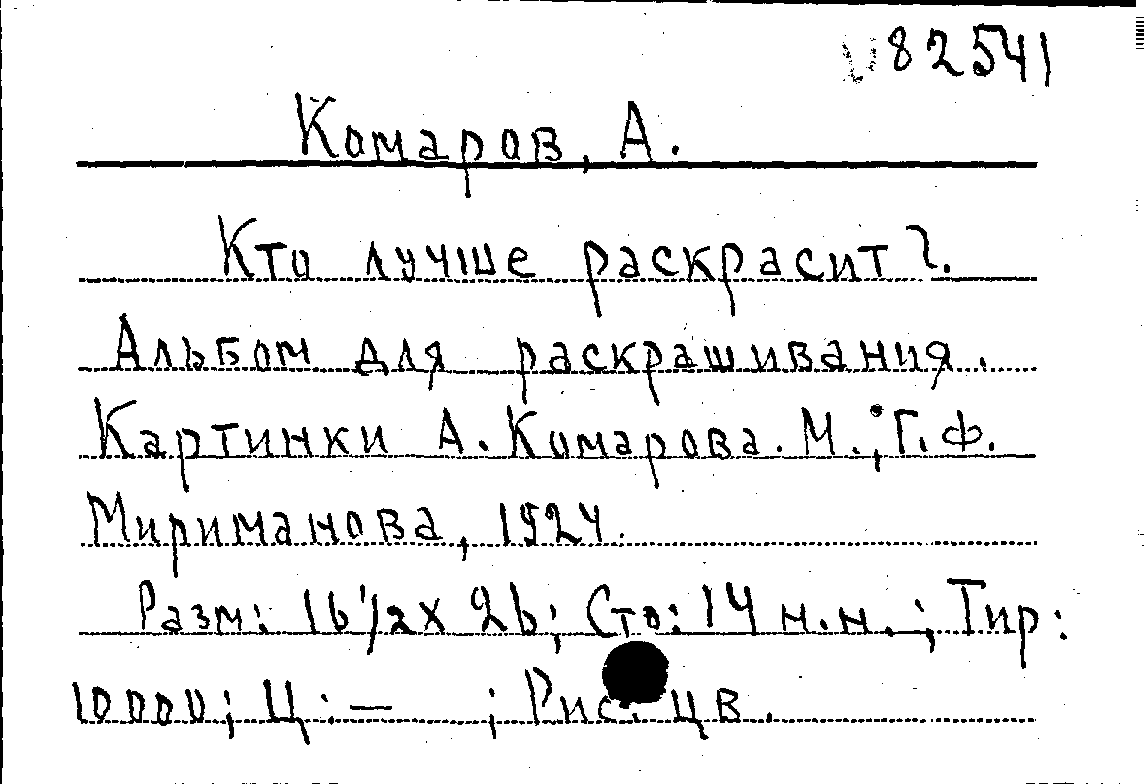 82541
Комаров, А.
Кто лучше раскрасит?.
Альбом для раскрашивания.
Картинки А. Комарова. М.; Г.Ф.
Мириманова, 1924.
Разм: 16 1/2 х 26; Сто: 14 н.н.; Тир:
10000; Ц: — ; Рис. цв.